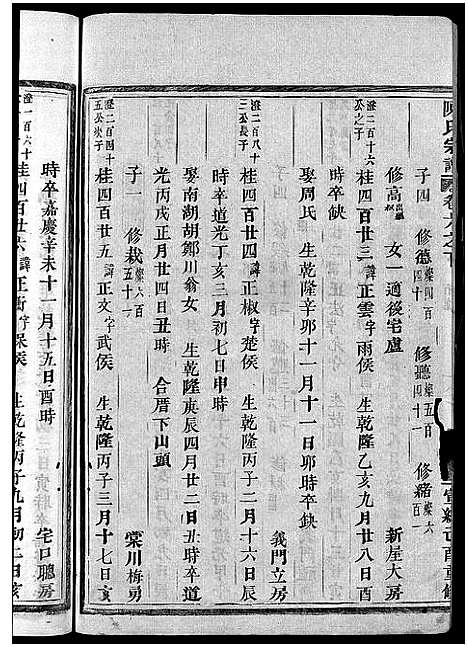 陳氏宗譜 卷六之下 宣統己酉重修
子四 修德 燦四百四十 修聽 燦五百四十一 修緒 燦六百一
修高 出嗣 女一適後宅盧 新屋大房
澄二百十六公之子 桂四百廿三 諱正雲字雨侯 生乾隆乙亥九月廿八日酉
時卒缺
娶周氏 生乾隆辛卯十一月十一日卯時卒缺 義門立房
澄二百八十三公長子 桂四百廿四 諱正椒字楚侯 生乾隆丙子二月十六日辰
時卒道光丁亥三月初七日申時
娶南湖胡鄭川翁女 生乾隆庚辰四月廿二日丑時卒道
光丙戌正月廿四日丑時 合厝下山頭
子一 修栽 燦六百五十一 棠川梅房
澄二百四十五公次子 桂四百廿五 諱正文字武侯 生乾隆丙子三月十七日亥
時卒嘉慶辛未十一月十五日酉時 宅口聰房
澄一百六十 桂四百廿六 諱正衡字保侯 生乾隆丙子九月初二日亥